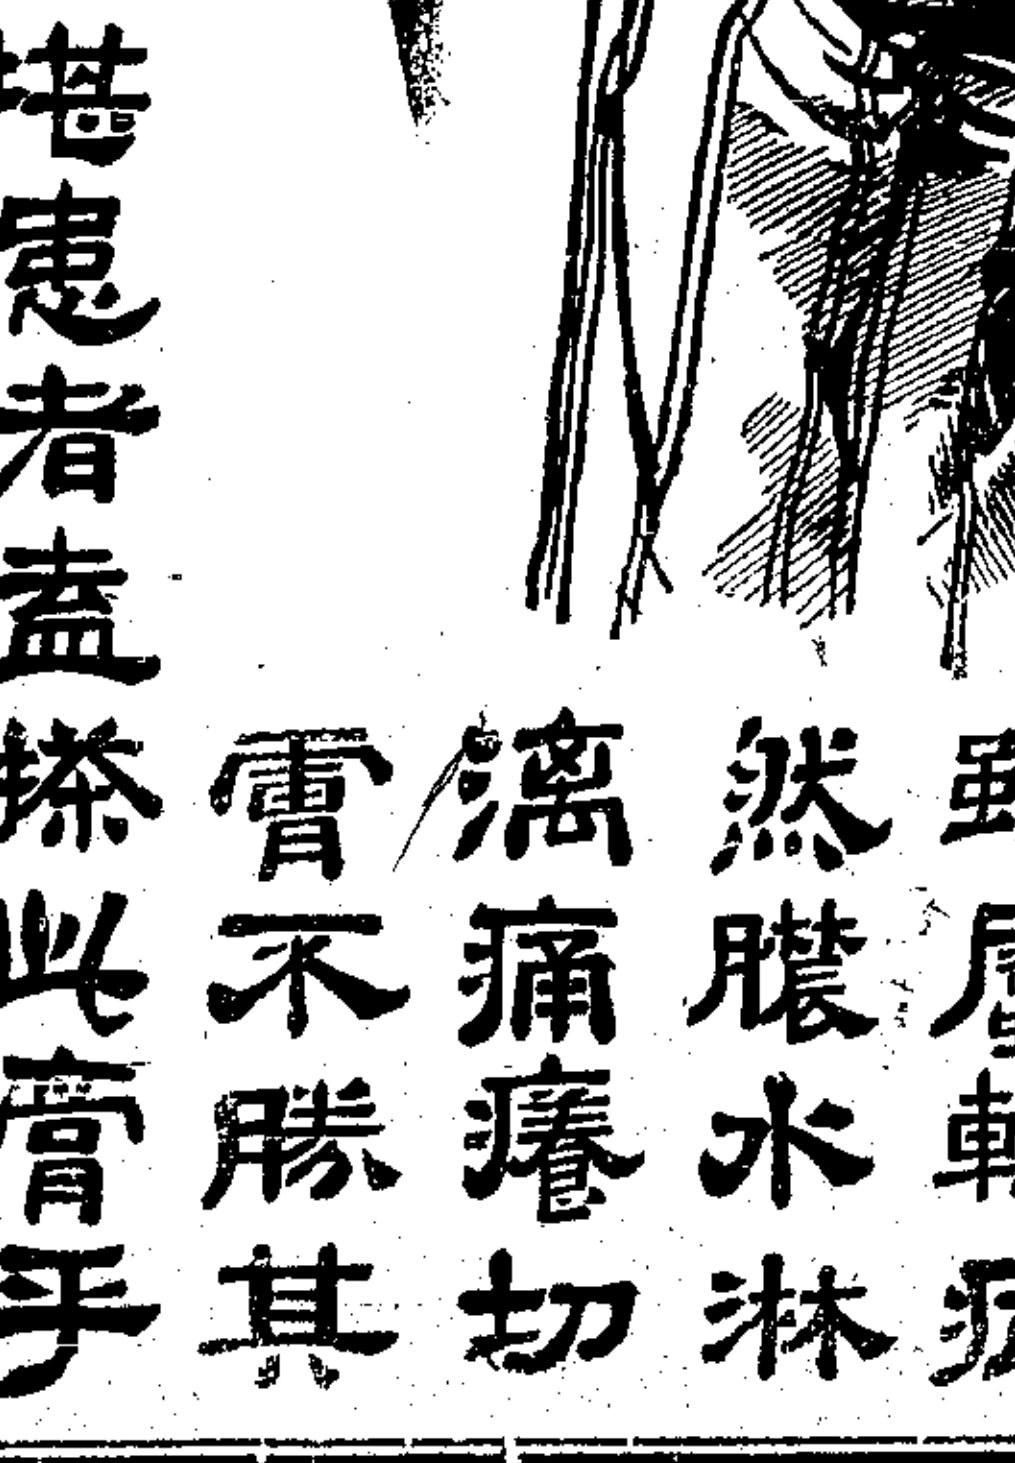 雖屬輕
然膿水淋
漓痛癢切
膚不勝其
堪患者盍搽此膏乎